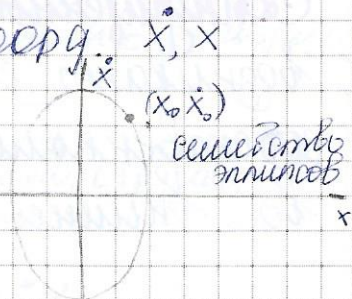 коорд. ẋ, x
ẋ
(x₀ ẋ₀)
семейство
эллипсов
x